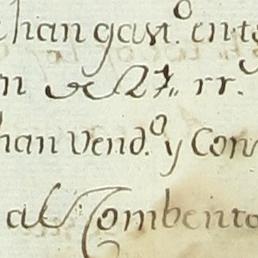 han gast.º ent
n de 27,, rr.
han Vend.º y Con
al Combento